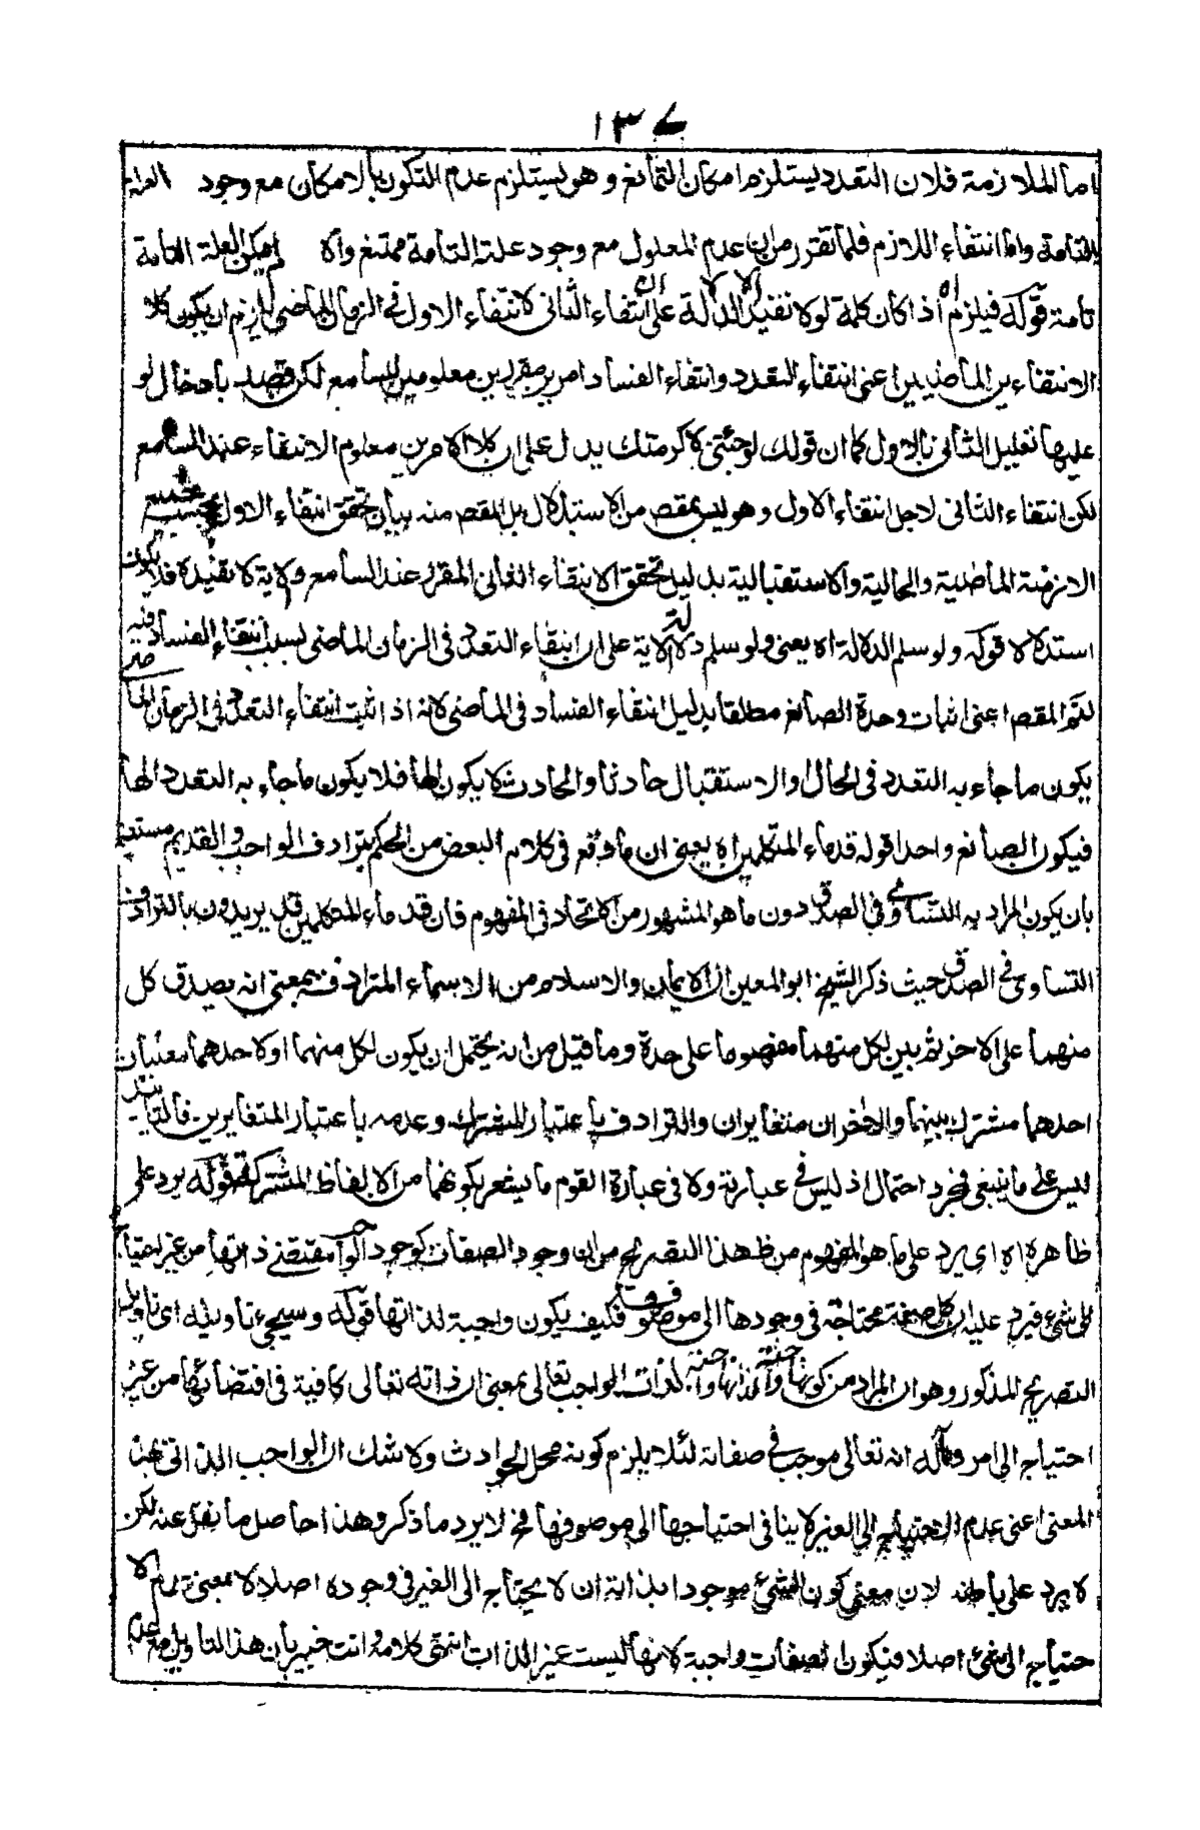 ١٣٧
اما الملازمة فلان التعدد يستلزم امكان التمانع وهو يستلزم عدم التكون بالامكان مع وجود العلة
التامة واما انتفاء اللازم فلما تقرر من ان عدم المعلول مع وجود علته التامة ممتنع والا لم يكن العلة التامة
تامة قوله فيلزم اه اذ كان كلمة لو لا تفيد الا الدلالة على انتفاء الثانى لانتفاء الاول فى الزمان الماضى يلزم ان يكون كلا
الانتفاءين الماضيين اعنى انتفاء التعدد وانتفاء الفساد امرين مقررين معلومين للسامع لكن قصد بادخال لو
عليها تعليل الثانى بالاول كما ان قولك لو جئتنى لاكرمتك يدل على ان كلا الامرين معلوم الانتفاء عند السامع
لكن انتفاء الثانى لاجل انتفاء الاول وهو ليس بمقص من الاستدلال بل المقصد منه بيان تحقق انتفاء الاول بحسب جميع
الازمنة الماضية والحالية والاستقبالية بدليل تحقق الانتفاء الثانى المقرر عند السامع والاية لا تفيده فلا يكون
استدلالا قوله ولو سلم الدلالة اه يعنى ولو سلم دلالة الاية على ان انتفاء التعدد فى الزمان الماضى بسبب انتفاء الفساد فيه
لتم المقصد اعنى اثبات وحدة الصانع مطلقا بدليل انتفاء الفساد فى الماضى لانه اذا ثبت انتفاء التعدد فى الزمان الماضى
يكون ما جاء به التعدد فى الحال والاستقبال حادثا والحادث لا يكون الها فلا يكون ما جاء به التعدد الها
فيكون الصانع واحدا قوله قدماء المتكلمين اه يعنى ان ما وقع فى كلام البعض من الحكم بترادف الواجب والقديم مستقيم
بان يكون المراد به التساوى فى الصدق دون ما هو المشهور من الاتحاد فى المفهوم فان قدماء المتكلمين قد يريدون بالترادف
التساوى فى الصدق حيث ذكر الشيخ ابو المعين ان الايمان والاسلام من الاسماء المترادفة بمعنى انه يصدق كل
منهما على الاخر ثم بين لكل منهما مفهوما على حدة وما قيل من انه يحتمل ان يكون لكل منهما او لاحدهما معنيان
احدهما مشترك بينهما والاخران متغايران والترادف باعتبار المشترك وعدمه باعتبار المتغايرين فالتائيد
ليس على ما ينبغى فمجرد احتمال اذ ليس فى عبارته ولا فى عبارة القوم ما يشعر بكونهما من الالفاظ المشتركة قوله يرد على
ظاهره اه اى يرد على ما هو المفهوم من ظ هذا التصريح من ان وجود الصفات كوجود الواجب مقتضى ذاتها من غير احتياج
الى شىء فيرد عليه ان كل صفة محتاجة فى وجودها الى موصوفها فكيف يكون واجبة لذاتها قوله وسيجىء تاويله اى تاويل
التصريح المذكور وهو ان المراد من كونها واجبة لذاتها واجبة لذات الواجب تعالى بمعنى ان ذاته تعالى كافية فى اقتضائها من غير
احتياج الى امر وماله انه تعالى موجب فى صفاته لئلا يلزم كونه محل الحوادث ولا شك ان الواجب الذاتى بهذا
المعنى اعنى عدم الاحتياج الى الغير لا ينافى احتياجها الى موصوفها فح لا يرد ما ذكر وهذا حاصل ما نقل عنه لكن
لا يرد على باطنه لان معنى كون الشىء موجودا بذاته ان لا يحتاج الى الغير فى وجوده اصلا لا بمعنى عدم الا
حتياج الى شىء اصلا فيكون الصفات واجبة لانها ليست غير الذات انتهى كلامه وانت خبير بان هذا التاويل مع عدم